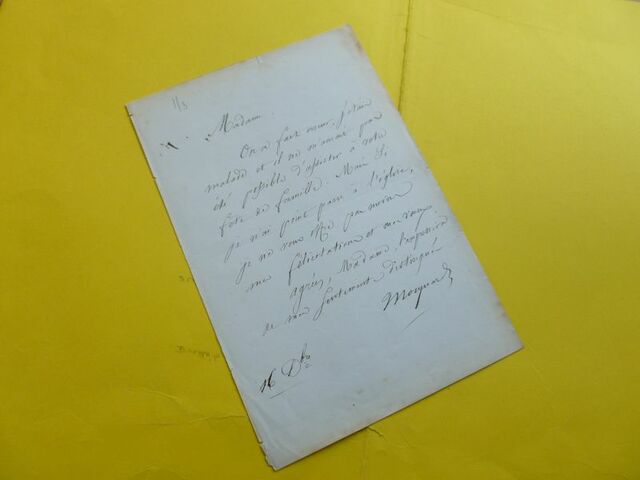 1/3
Madame
On a fait erreur, j'étais
malade et il ne m'aurait pas
été possible d'assister à votre
fête de famille. Mais si
je n'ai point paru à l'église,
je ne vous offre pas moins
mes félicitations et mes vœux
agréez, Madame, l'expression
de mes sentiments distingués
Mocquard
16 Dbre